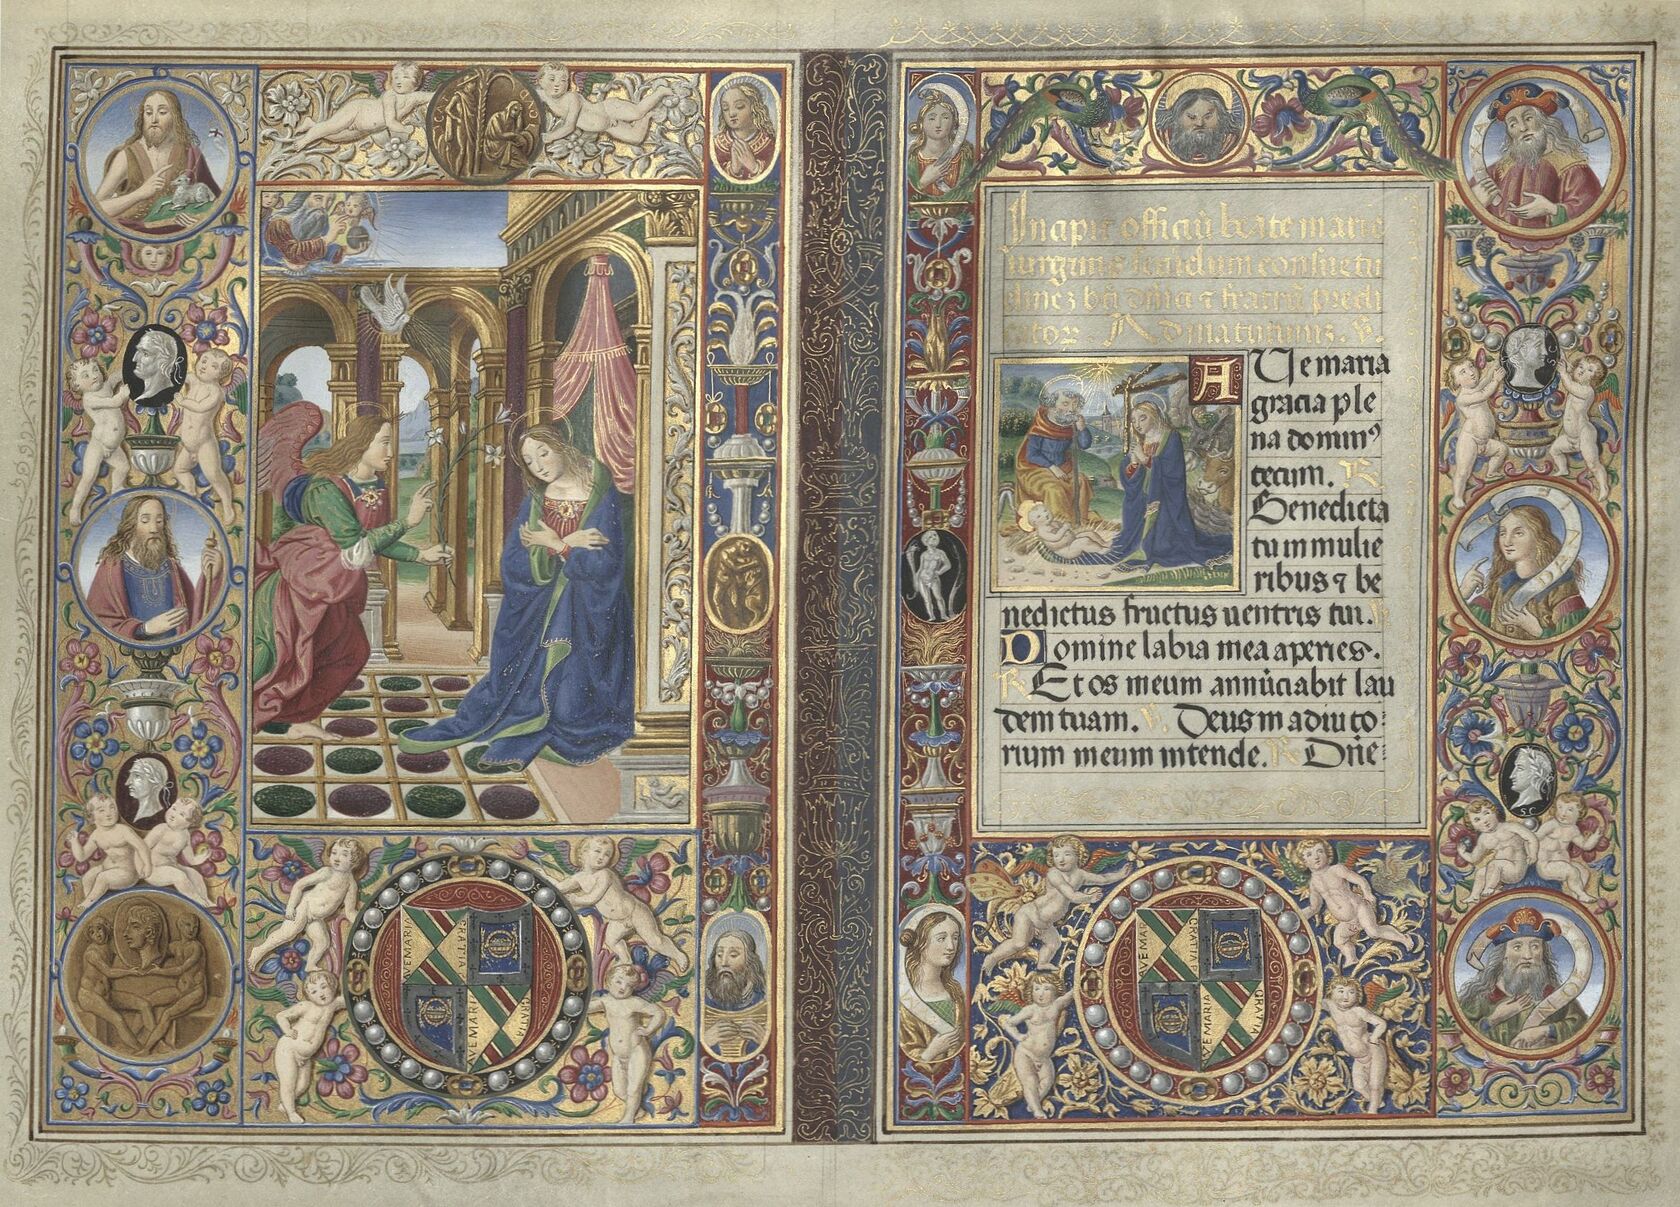 AVE MARIA
GRATIA
GRATIA
AVE MARIA
Incipit officiū beate marie
virginis secūdum consuetu
dinez bti dn̄ici ⁊ fratrū predi
catoꝝ. Ad matutinuz. V.
AUe maria
gracia ple
na domin⁹
tecum. R
Benedicta
tu in mulie
ribus ⁊ be
nedictus fructus uentris tui. R
Domine labia mea aperies.
R Et os meum annūciabit lau
dem tuam. V. Deus in adiuto
rium meum intende. R Dn̄e
S C
AVE MARI
GRATIA P
AVE MARIA
GRATIA